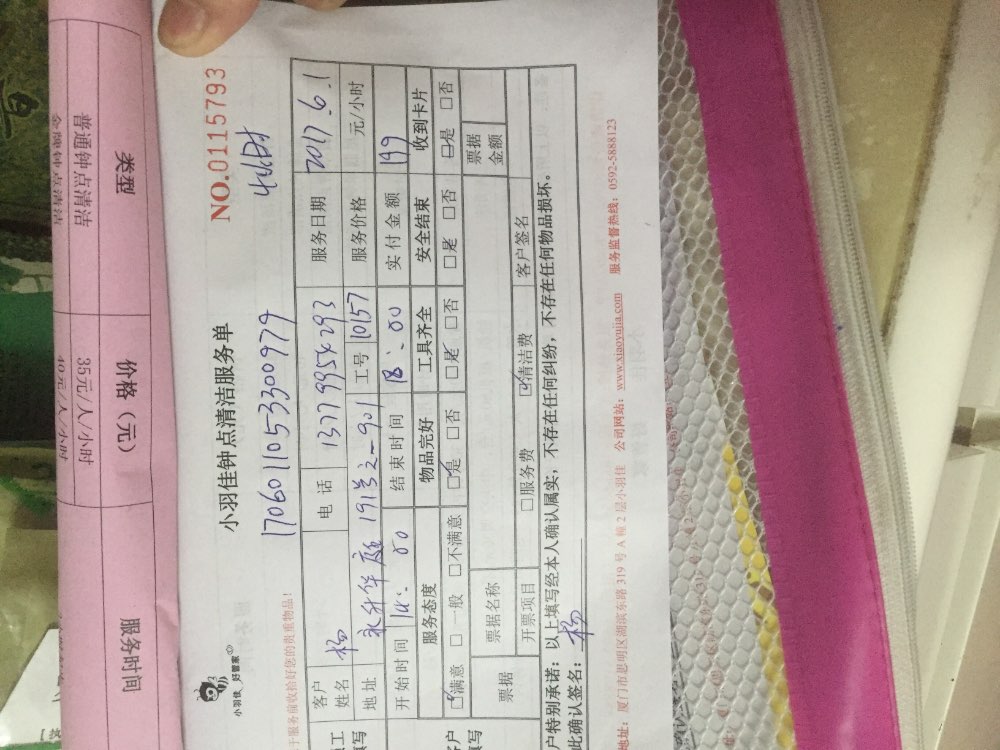 类型
价格（元）
服务时间
普通钟点清洁
35元/人/小时
金牌钟点清洁
40元/人/小时
小羽佳 好管家
小羽佳钟点清洁服务单
NO.0115793
1706011053300979
4小时
于服务前收拾好您的贵重物品！
客户姓名
杨
电 话
13779954293
服务日期
2017.6.1
地址
永升华庭191号2-901
工号
10157
服务价格
元/小时
开始时间
14：00
结束时间
18：00
实付金额
199
服务态度
物品完好
工具齐全
安全结束
收到卡片
☑满意 □一般 □不满意
☑是 □否
☑是 □否
□是 □否
□是 □否
票据
票据名称
票据金额
开票项目
□服务费 ☑清洁费
客户签名
户特别承诺：以上填写经本人确认属实，不存在任何纠纷，不存在任何物品损坏。
此确认签名：杨
地址：厦门市思明区湖滨东路319号A幢2层小羽佳 公司网站：www.xiaoyujia.com 服务监督热线：0592-5888123